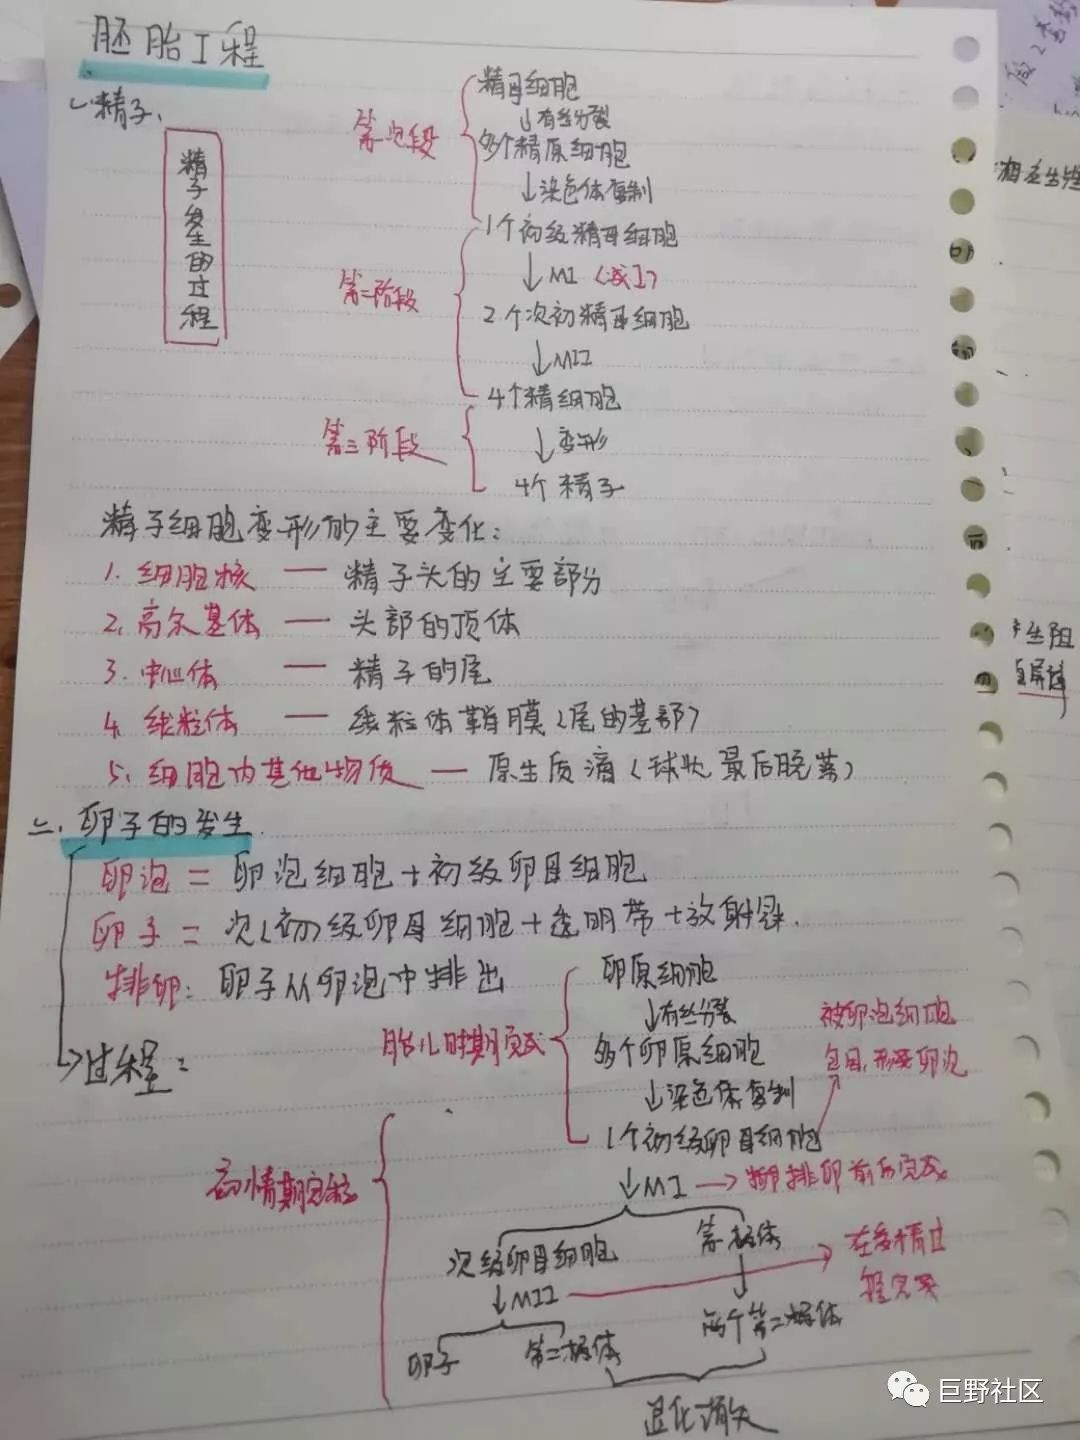 胚胎工程
一、精子
精子发生的过程
第一阶段
精母细胞
↓有丝分裂
多个精原细胞
↓染色体复制
1个初级精母细胞
第二阶段
↓MI (减I)
2个次初精母细胞
↓MII
4个精细胞
第三阶段
↓变形
4个精子
精子细胞变形的主要变化:
1. 细胞核 — 精子头的主要部分
2. 高尔基体 — 头部的顶体
3. 中心体 — 精子的尾
4. 线粒体 — 线粒体鞘膜(尾的基部)
5. 细胞内其他物质 — 原生质滴(球状最后脱落)
二、卵子的发生
卵泡 = 卵泡细胞+初级卵母细胞
卵子 = 次(初)级卵母细胞+透明带+放射冠.
排卵: 卵子从卵泡中排出
过程:
胎儿时期完成
卵原细胞
↓有丝分裂
多个卵原细胞
↓染色体复制
1个初级卵母细胞
被卵泡细胞
包围,形成卵泡
↓MI → 排卵前后完成
次级卵母细胞
第一极体
↓MII
在受精过
程完成
卵子
第二极体
两个第二极体
退化消失
相
生阻
巨野社区